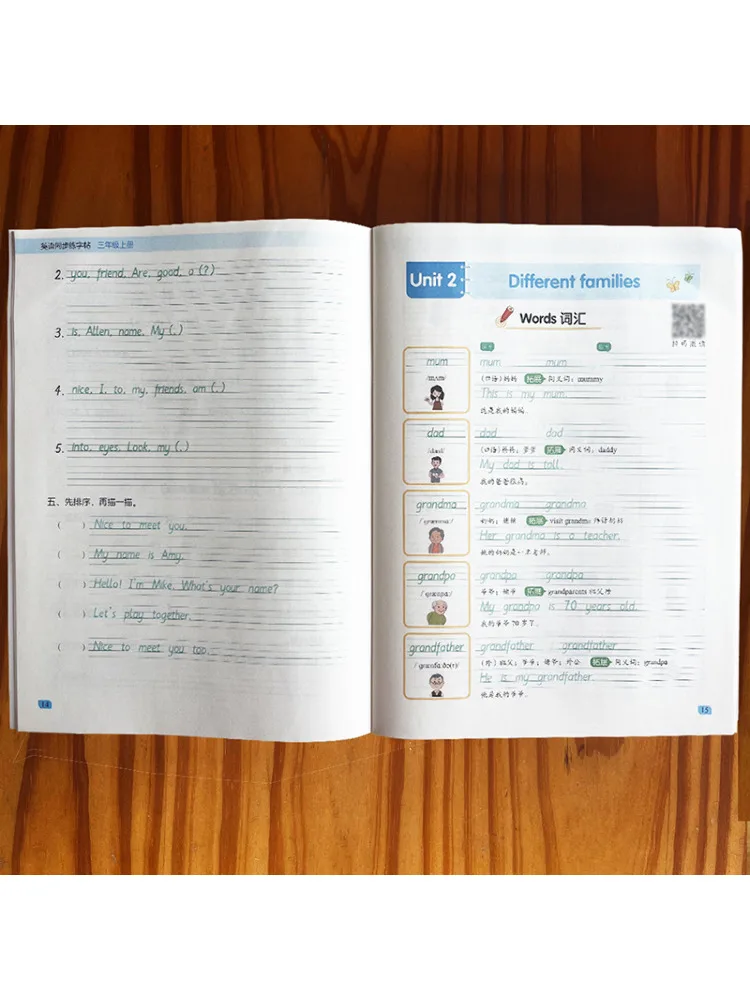 英语同步练字帖 三年级上册
2. you, friend, Are, good, a (?)
3. is, Allen, name, My (.)
4. nice, I, to, my, friends, am (.)
5. into, eyes, Look, my (.)
五、先排序，再描一描。
( ) Nice to meet you.
( ) My name is Amy.
( ) Hello! I'm Mike. What's your name?
( ) Let's play together.
( ) Nice to meet you too.
14
Unit 2 Different families
Words 词汇
扫码跟读
mum
mum mum
(口语) 妈妈 拓展 同义词：mummy
This is my mum.
这是我的妈妈。
dad
/dæd/
dad dad
(口语) 爸爸；爹爹 拓展 同义词：daddy
My dad is tall.
我的爸爸很高。
grandma
/ˈɡrænmɑː/
grandma grandma
奶奶；姥姥 拓展 visit grandma
Her grandma is a teacher.
她的奶奶是一名老师。
grandpa
/ˈɡrænpɑː/
grandpa grandpa
爷爷；姥爷 拓展 grandparents 祖父母
My grandpa is 70 years old.
我的爷爷70岁了。
grandfather
/ˈɡrænfɑːðə(r)/
grandfather grandfather
(外) 祖父；爷爷；姥爷；外公 拓展 同义词：grandpa
He is my grandfather.
他是我的爷爷。
15